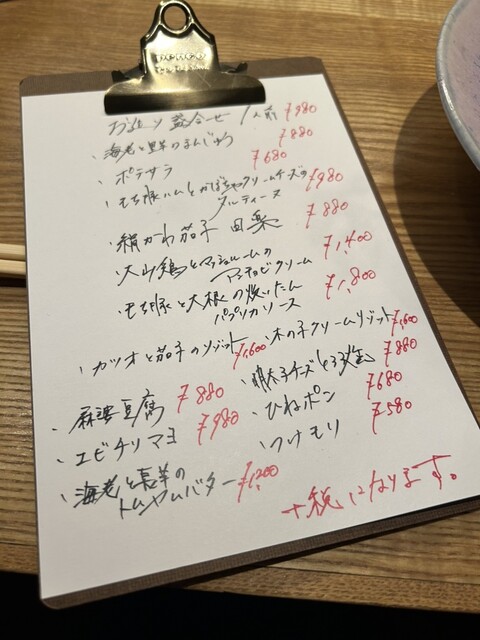 お造り盛合せ 1人前 ¥980
・海老と里芋のまんじゅう ¥880
・ポテサラ ¥680
・もち豚ハムとかぼちゃクリームチーズの ¥980
タルティーヌ
・絹かわ茄子 田楽 ¥880
・大山鶏とマッシュルームの
アンチョビクリーム ¥1,400
・もち豚と大根の炊いたん ¥1,800
パプリカソース
・カツオと茄子のリゾット ¥1,600
・木の子クリームリゾット ¥1,600
・麻婆豆腐 ¥880
・明太子チーズとろ玉 ¥880
・エビチリマヨ ¥980
・ひねポン ¥680
・つけモリ ¥580
・海老と長芋の
トムヤムバター ¥1,200
+税になります。